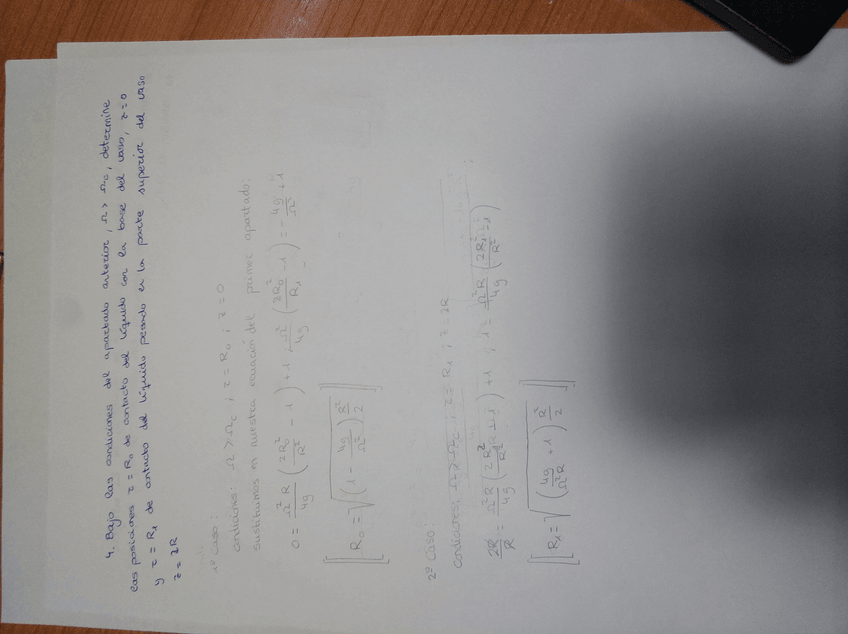 4. Bajo las condiciones del apartado anterior, Ω > Ωc, determine
las posiciones r = R₀ de contacto del líquido con la base del vaso, z = 0
y r = R₁ de contacto del líquido pesado en la parte superior del vaso
z = 2R
1º Caso:
condiciones: Ω > Ωc ; r = R₀ ; z = 0
sustituimos en nuestra ecuación del primer apartado:
0 = Ω²R/4g (2R₀²/R² - 1) + 1
R₀ = √((1 - 4g/Ω²) R²/2)
2º Caso:
condiciones: Ω > Ωc ; r = R₁ ; z = 2R
2R/R = Ω²R/4g (2R²/R² - 1) + 1 ; 1 = Ω²R/4g (2R₁²/R² - 1)
R₁ = √((4g/Ω²R + 1) R²/2)